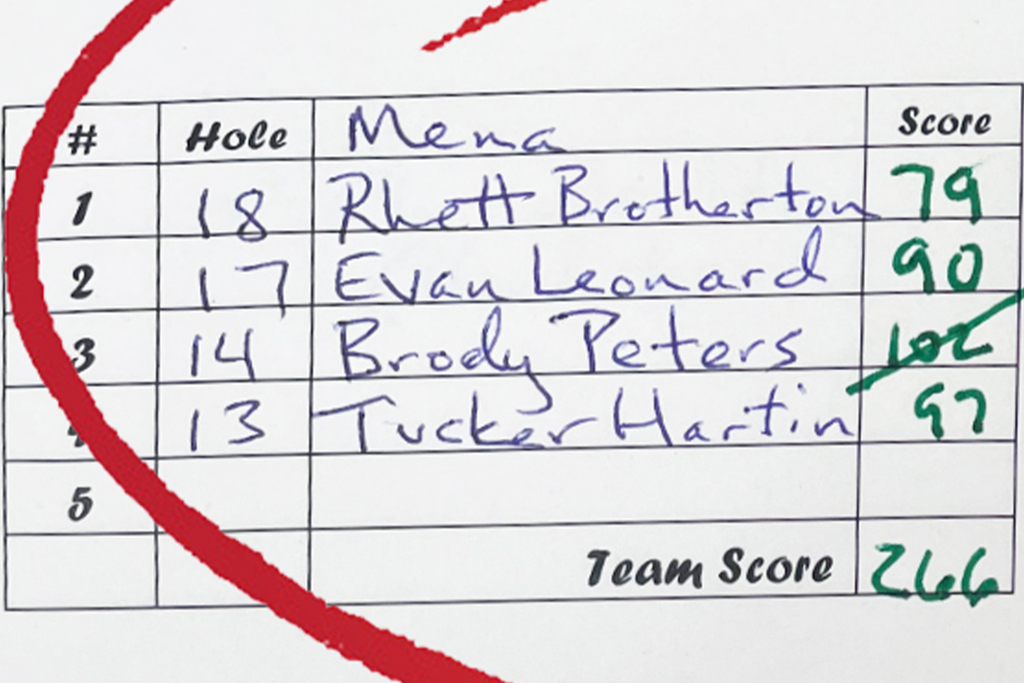 # Hole Mena Score
1 18 Rhett Brotherton 79
2 17 Evan Leonard 90
3 14 Brody Peters 102
4 13 Tucker Hartin 97
5
Team Score 266